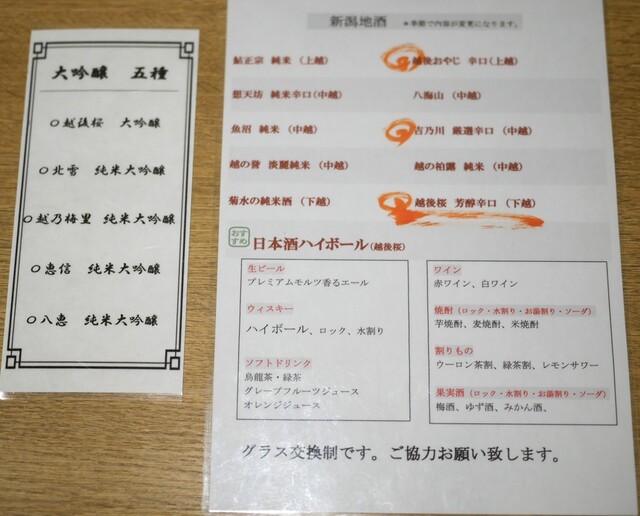 大吟醸 五種
○越後桜 大吟醸
○北雪 純米大吟醸
○越乃梅里 純米大吟醸
○恵信 純米大吟醸
○八恵 純米大吟醸
新潟地酒 *季節で内容が変更になります。
鮎正宗 純米 (上越) 越後おやじ 辛口(上越)
想天坊 純米辛口(中越) 八海山 (中越)
魚沼 純米 (中越) 吉乃川 厳選辛口 (中越)
越の誉 淡麗純米 (中越) 越の柏露 純米 (中越)
菊水の純米酒 (下越) 越後桜 芳醇辛口 (下越)
おすすめ 日本酒ハイボール(越後桜)
生ビール
プレミアムモルツ香るエール
ウィスキー
ハイボール、ロック、水割り
ソフトドリンク
烏龍茶・緑茶
グレープフルーツジュース
オレンジジュース
ワイン
赤ワイン、白ワイン
焼酎 (ロック・水割り・お湯割り・ソーダ)
芋焼酎、麦焼酎、米焼酎
割りもの
ウーロン茶割、緑茶割、レモンサワー
果実酒 (ロック・水割り・お湯割り・ソーダ)
梅酒、ゆず酒、みかん酒、
グラス交換制です。ご協力お願い致します。